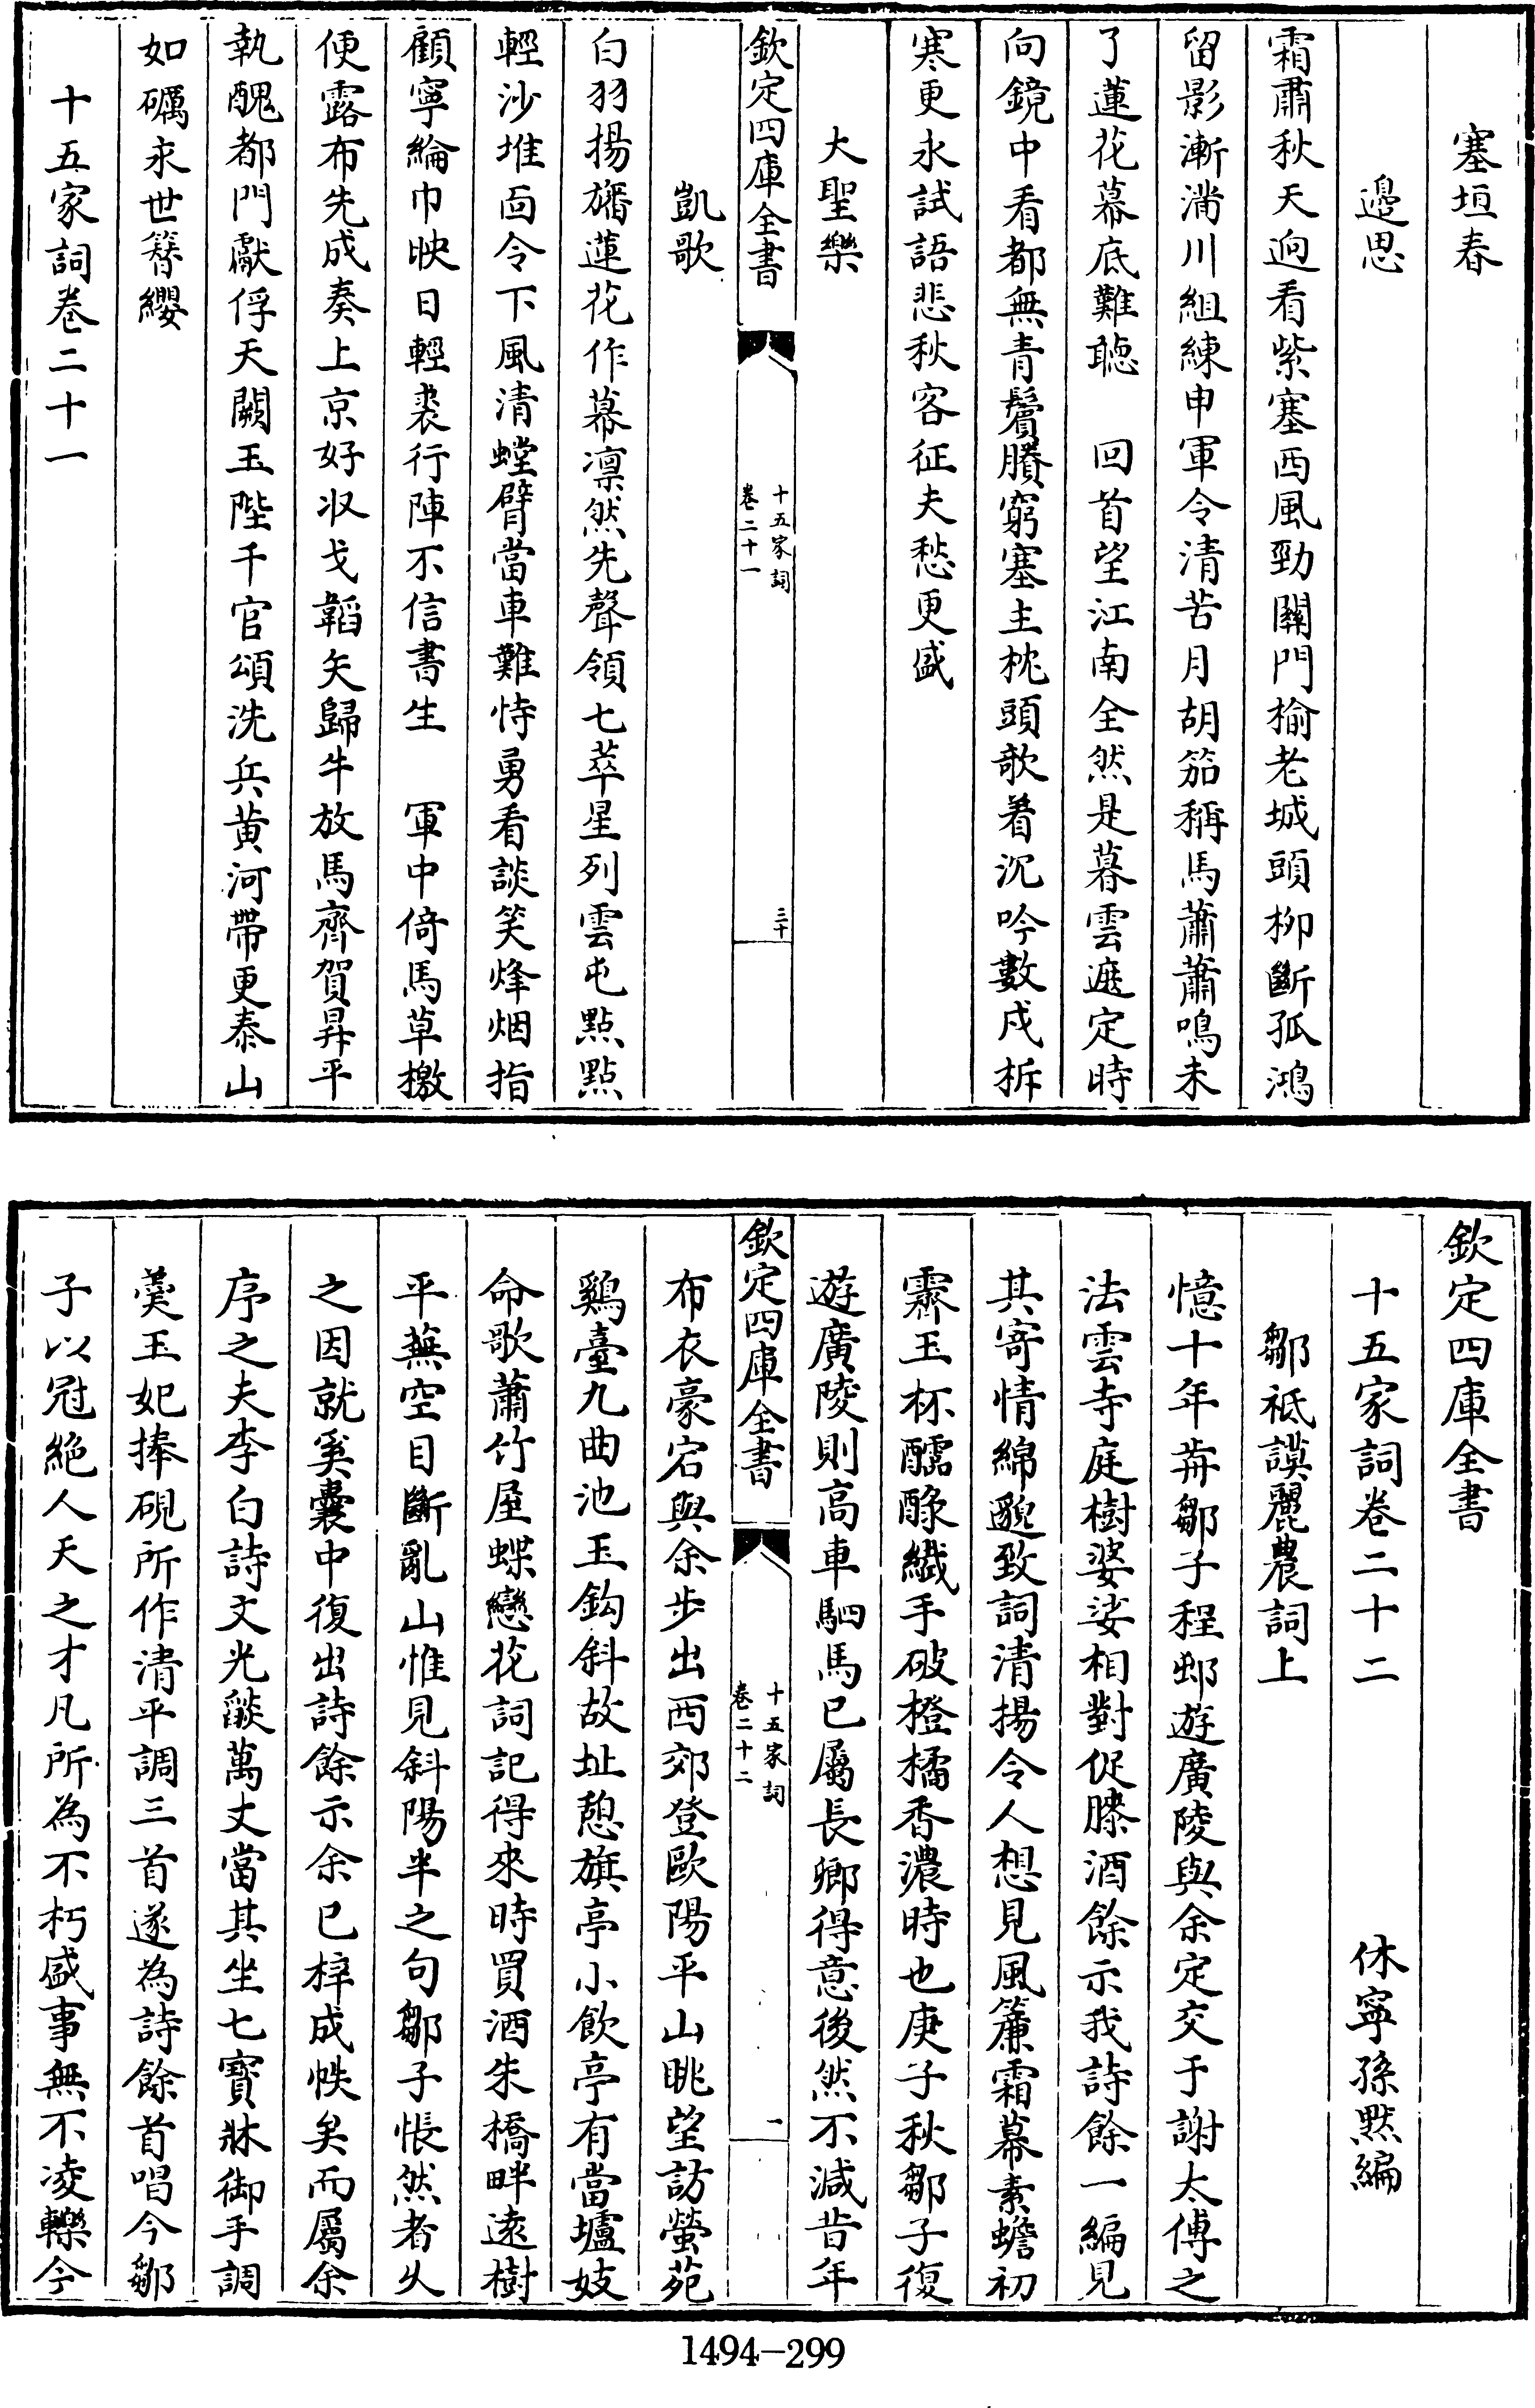 塞垣春
邊思
霜肅秋天迥看紫塞西風勁關門榆老城頭柳斷孤鴻
留影漸滿川組練申軍令清苦月胡笳稱馬蕭蕭鳴未
了蓮花幕底難聽　回首望江南全然是暮雲遮定時
向鏡中看都無青鬢賸窮塞主枕頭歌着沉吟數戍柝
寒更永試語悲秋客征夫愁更盛
大聖樂
欽定四庫全書
十五家詞
卷二十一
三十
凱歌
白羽揚旛蓮花作幕凛然先聲領七萃星列雲屯點點
輕沙堆面令下風清螳臂當車難恃勇看談笑烽烟指
顧寧綸巾映日輕裘行陣不信書生　軍中倚馬草檄
便露布先成奏上京好收戈韜矢歸牛放馬齊賀昇平
執醜都門獻俘天闕玉陛千官頌洗兵黄河帶更泰山
如礪永世簪纓
十五家詞卷二十一
欽定四庫全書
十五家詞卷二十二
休寧孫黙編
鄒祗謨麗農詞上
憶十年前鄒子程邨遊廣陵與余定交于謝太傅之
法雲寺庭樹婆娑相對促膝酒餘示我詩餘一編見
其寄情綿邈致詞清揚令人想見風簾霜幕素蟾初
霽玉杯醹醁纎手破橙橘香濃時也庚子秋鄒子復
遊廣陵則高車駟馬已屬長卿得意後然不減昔年
欽定四庫全書
十五家詞
卷二十二
一
布衣豪宕與余步出西郊登歐陽平山眺望訪螢苑
鷄臺九曲池玉鈎斜故址憩旗亭小飲亭有當壚妓
命歌蕭竹屋蝶戀花詞記得來時買酒朱橋畔遠樹
平蕪空目斷亂山惟見斜陽半之句鄒子悵然者乆
之因就奚囊中復出詩餘示余已梓成帙矣而屬余
序之夫李白詩文光燄萬丈當其坐七寳牀御手調
羮玉妃捧硯所作清平調三首遂為詩餘首唱今鄒
子以冠絶人天之才凡所為不朽盛事無不凌轢今
1494-299